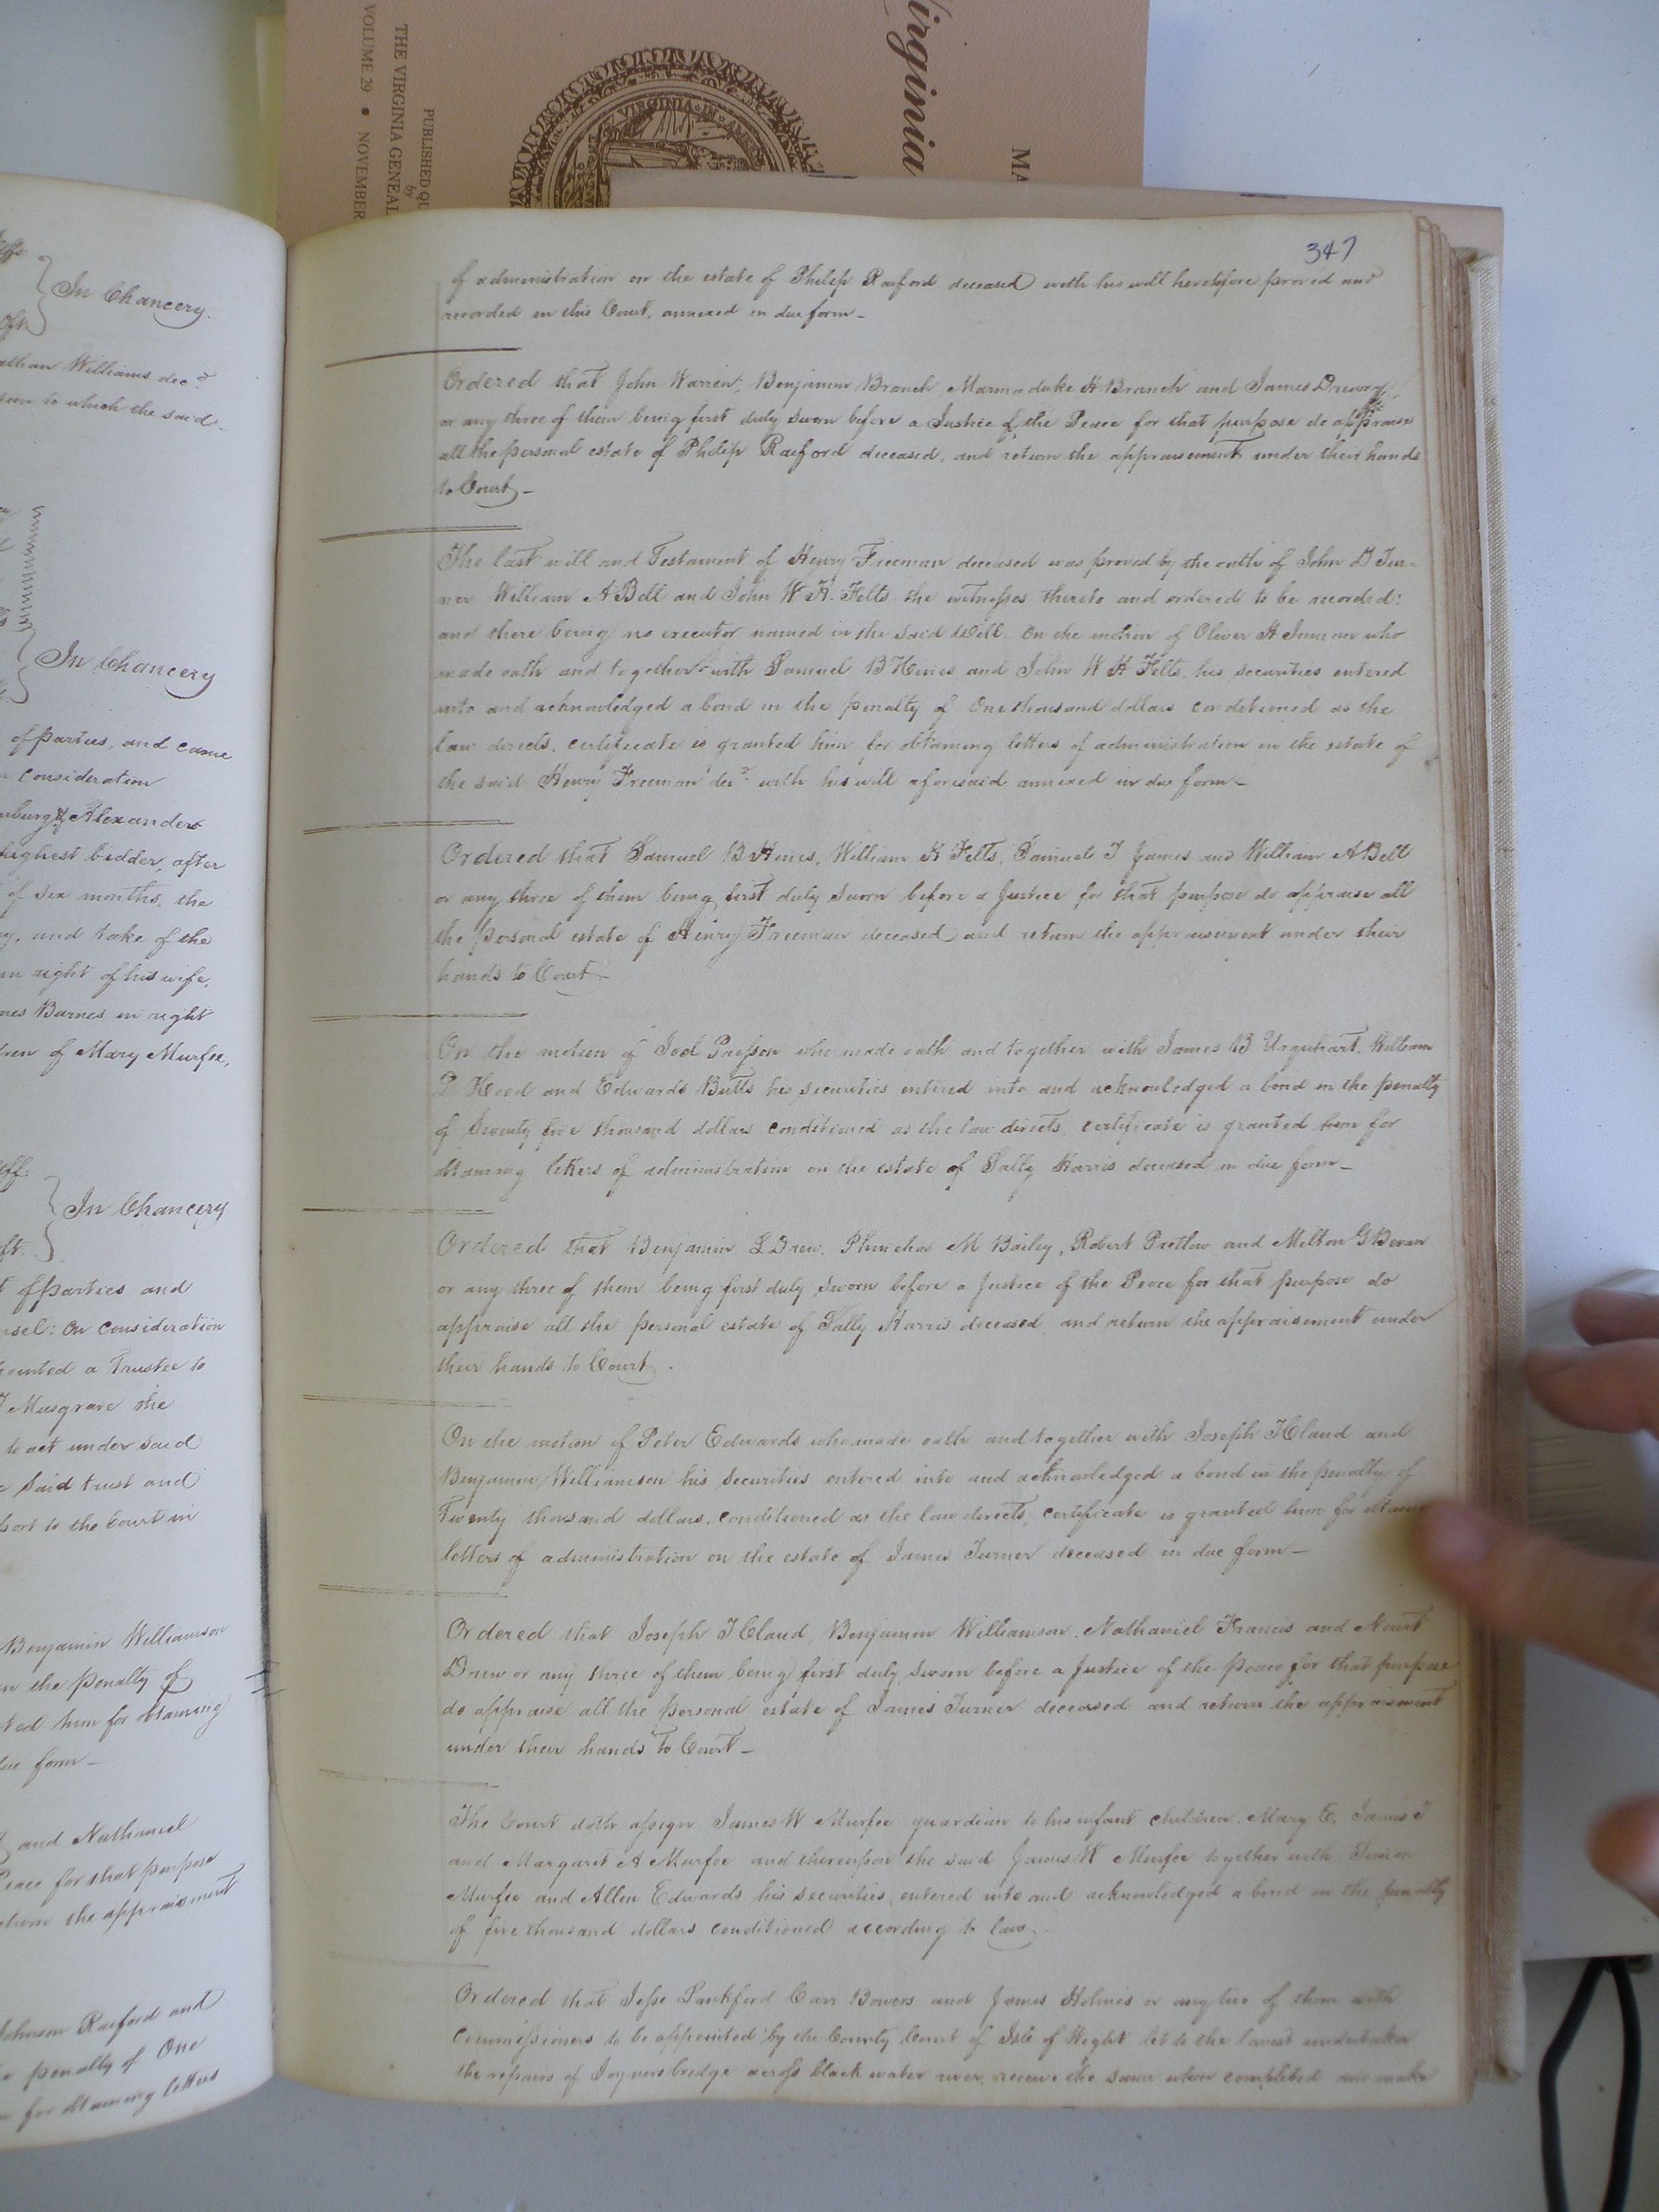 Virginia
MA
PUBLISHED QU
by
THE VIRGINIA GENEAL
VOLUME 29 • NOVEMBER
VIRGINIA
In Chancery.
athan Williams decd
to which the said
In Chancery
of parties, and came
consideration
nburg & Alexander
highest bidder, after
of six months, the
and take of the
in right of his wife,
mes Barnes in right
dren of Mary Murfee,
In Chancery
t of parties and
nsel: On consideration
ointed a Trustee to
T Musgrave the
to act under said
e said trust and
port to the Court in
Benjamin Williamson
n the penalty of
ted him for obtaining
due form –
and Nathaniel
Peace for that purpose
eturn the appraisment
Johnson Raiford and
e penalty of One
for obtaining letters
347
of administration on the estate of Philip Raiford deceased with his will heretofore proved and
recorded in this Court, annexed in due form –
Ordered that John Warren, Benjamin Branch, Marmaduke H Branch and James Drewry
or any three of them being first duly sworn before a Justice of the Peace for that purpose do appraise
all the personal estate of Philip Raiford deceased, and return the appraisement under their hands
to Court –
The last will and Testament of Henry Freeman deceased was proved by the oath of John D Tur-
ner William A Bell and John W H. Felts the witnesses thereto and ordered to be recorded:
and there being no executor named in the said Will. On the motion of Oliver H Inman who
made oath and together with Samuel B Hines and John W H Felts, his securities entered
into and acknowledged a bond in the penalty of One thousand dollars conditioned as the
law directs, certificate is granted him for obtaining letters of administration on the estate of
the said Henry Freeman decd with his will aforesaid annexed in due form –
Ordered that Samuel B Hines, William H Felts, Samuel T James and William A Bell
or any three of them being first duly sworn before a Justice for that purpose do appraise all
the personal estate of Henry Freeman deceased and return the appraisement under their
hands to Court –
On the motion of Joel who made oath and together with James B Urquhart, William
Hood and Edwards Butts his securities entered into and acknowledged a bond in the penalty
of five thousand dollars conditioned as the law directs, certificate is granted him for
obtaining letters of administration on the estate of Sally Harris deceased in due form –
Ordered that Benjamin L Drew, Phinehas M Bailey, Robert Pretlow and Melton G Bevan
or any three of them being first duly sworn before a Justice of the Peace for that purpose do
appraise all the personal estate of Sally Harris deceased, and return the appraisement under
their hands to Court.
On the motion of Peter Edwards who made oath and together with Joseph T Claud and
Benjamin Williamson his securities entered into and acknowledged a bond in the penalty of
Twenty thousand dollars, conditioned as the law directs, certificate is granted him for
letters of administration on the estate of James Turner deceased in due form –
Ordered that Joseph T Claud, Benjamin Williamson, Nathaniel Francis and Newit
Drew or any three of them being first duly sworn before a Justice of the peace for that purpose
do appraise all the personal estate of James Turner deceased and return the appraisment
under their hands to Court –
The Court doth assign James W Murfee guardian to his infant children, Mary E, James T
and Margaret A Murfee and thereupon the said James W Murfee together with Simon
Murfee and Allen Edwards his securities, entered into and acknowledged a bond in the penalty
of five thousand dollars conditioned according to law.
Ordered that Jesse Lankford Carr Bowers and James Holmes or any two of them with
Commissioners to be appointed by the County Court of Isle of Wight let to the lowest undertaker
the repairs of Joyners bridge across black water river, receive the same when completed and make